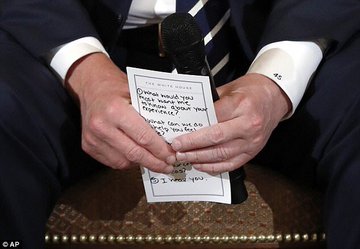 THE WHITE HOUSE
① What would you
most want me
to know about your
experience?
What can we do
to help you feel
I hear you.
45
© AP